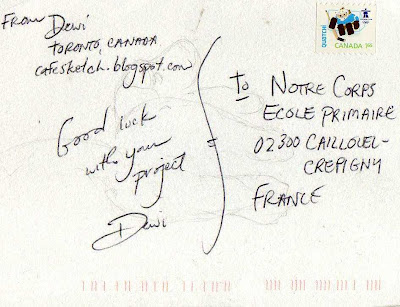 From Dewi
TORONTO, CANADA
cafesketch.blogspot.com
Good luck
with your
project
Dewi
QUATCHI
CANADA
To NOTRE CORPS
ECOLE PRIMAIRE
02300 CAILLOUEL-
CREPIGNY
FRANCE